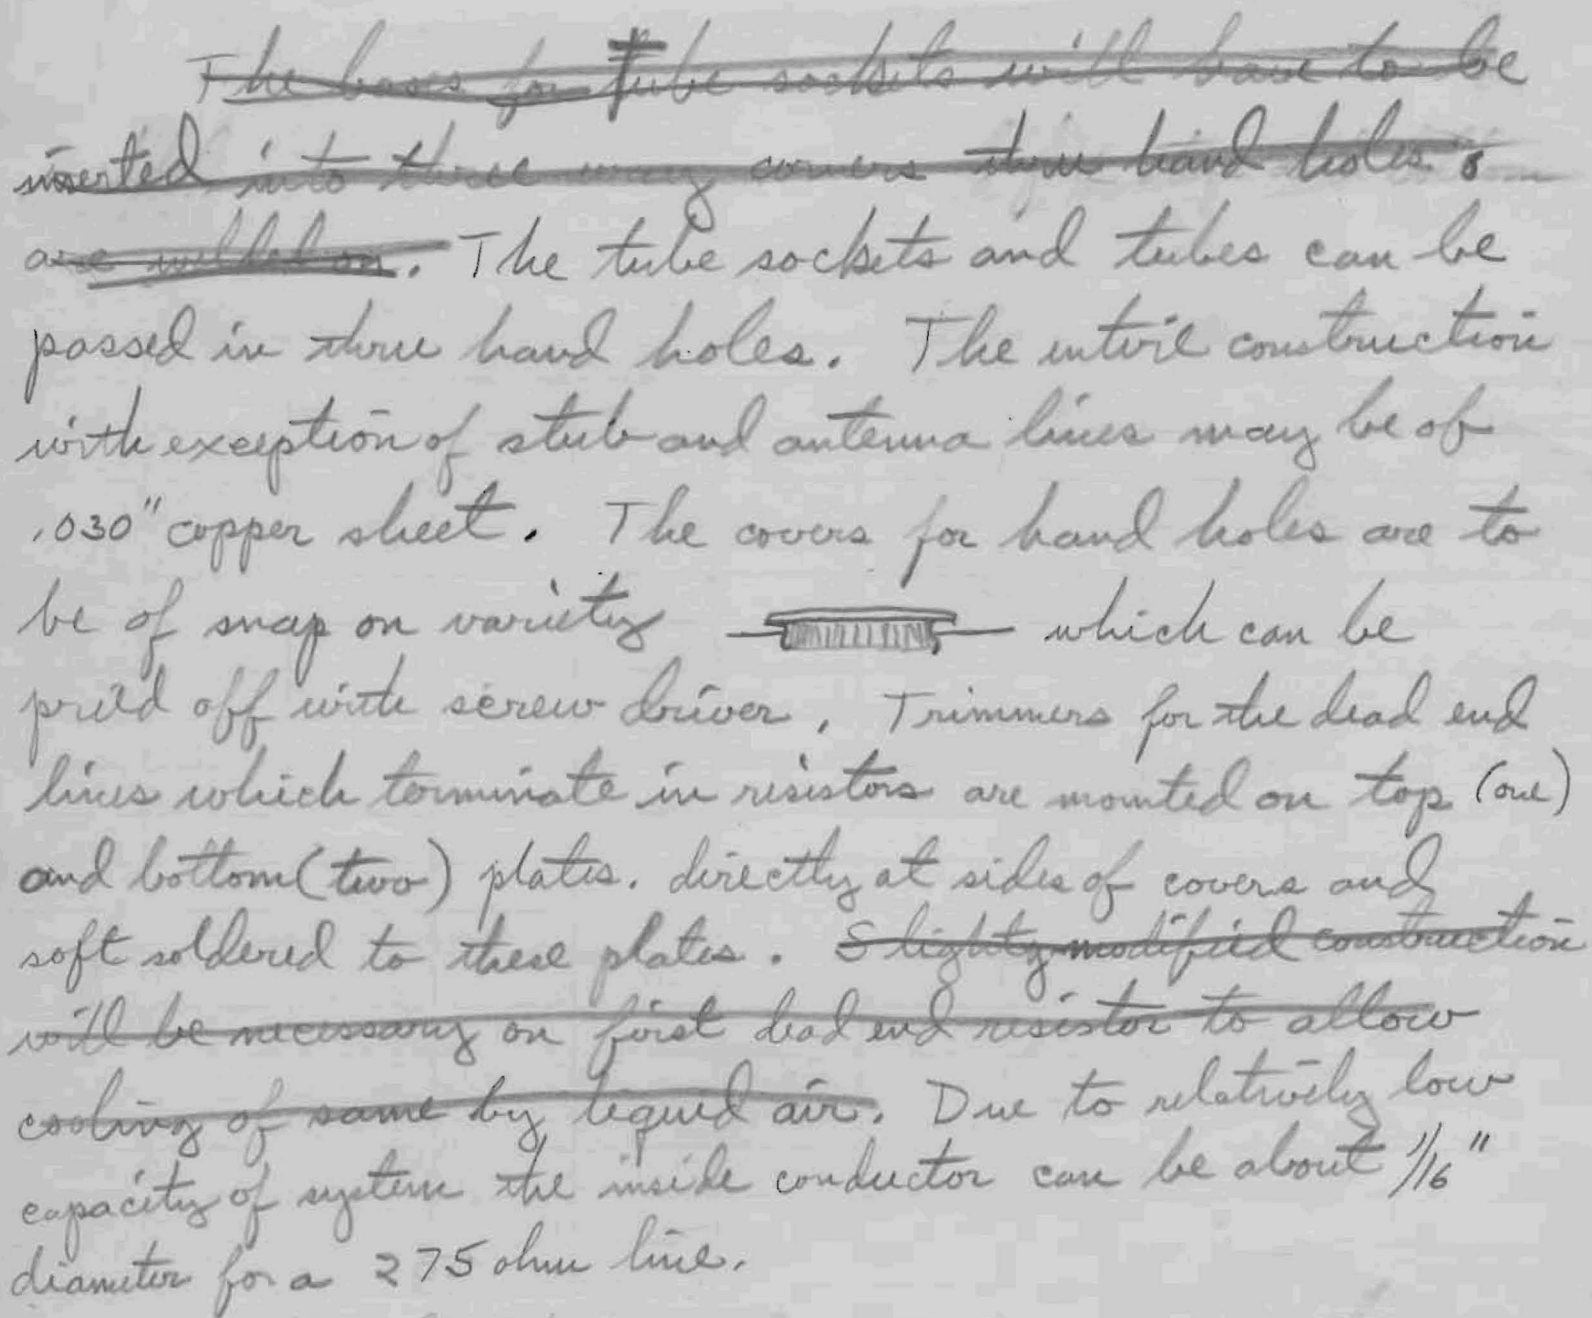 The bases for tube sockets will have to be
inserted into three way corners thru hand holes &
are welded on. The tube sockets and tubes can be
passed in thru hand holes. The entire construction
with exception of stub and antenna lines may be of
.030" copper sheet. The covers for hand holes are to
be of snap on variety which can be
pried off with screw driver. Trimmers for the dead end
lines which terminate in resistors are mounted on top (one)
and bottom (two) plates. directly at sides of covers and
soft soldered to these plates. Slighty modified construction
will be necessary on first dead end resistor to allow
cooling of same by liquid air. Due to relatively low
capacity of system the inside conductor can be about 1/16"
diameter for a 275 ohm line.